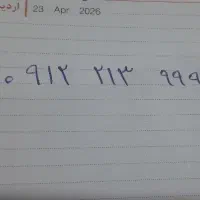 23 Apr 2026
۰۹۱۲ ۲۱۳ ۹۹۹